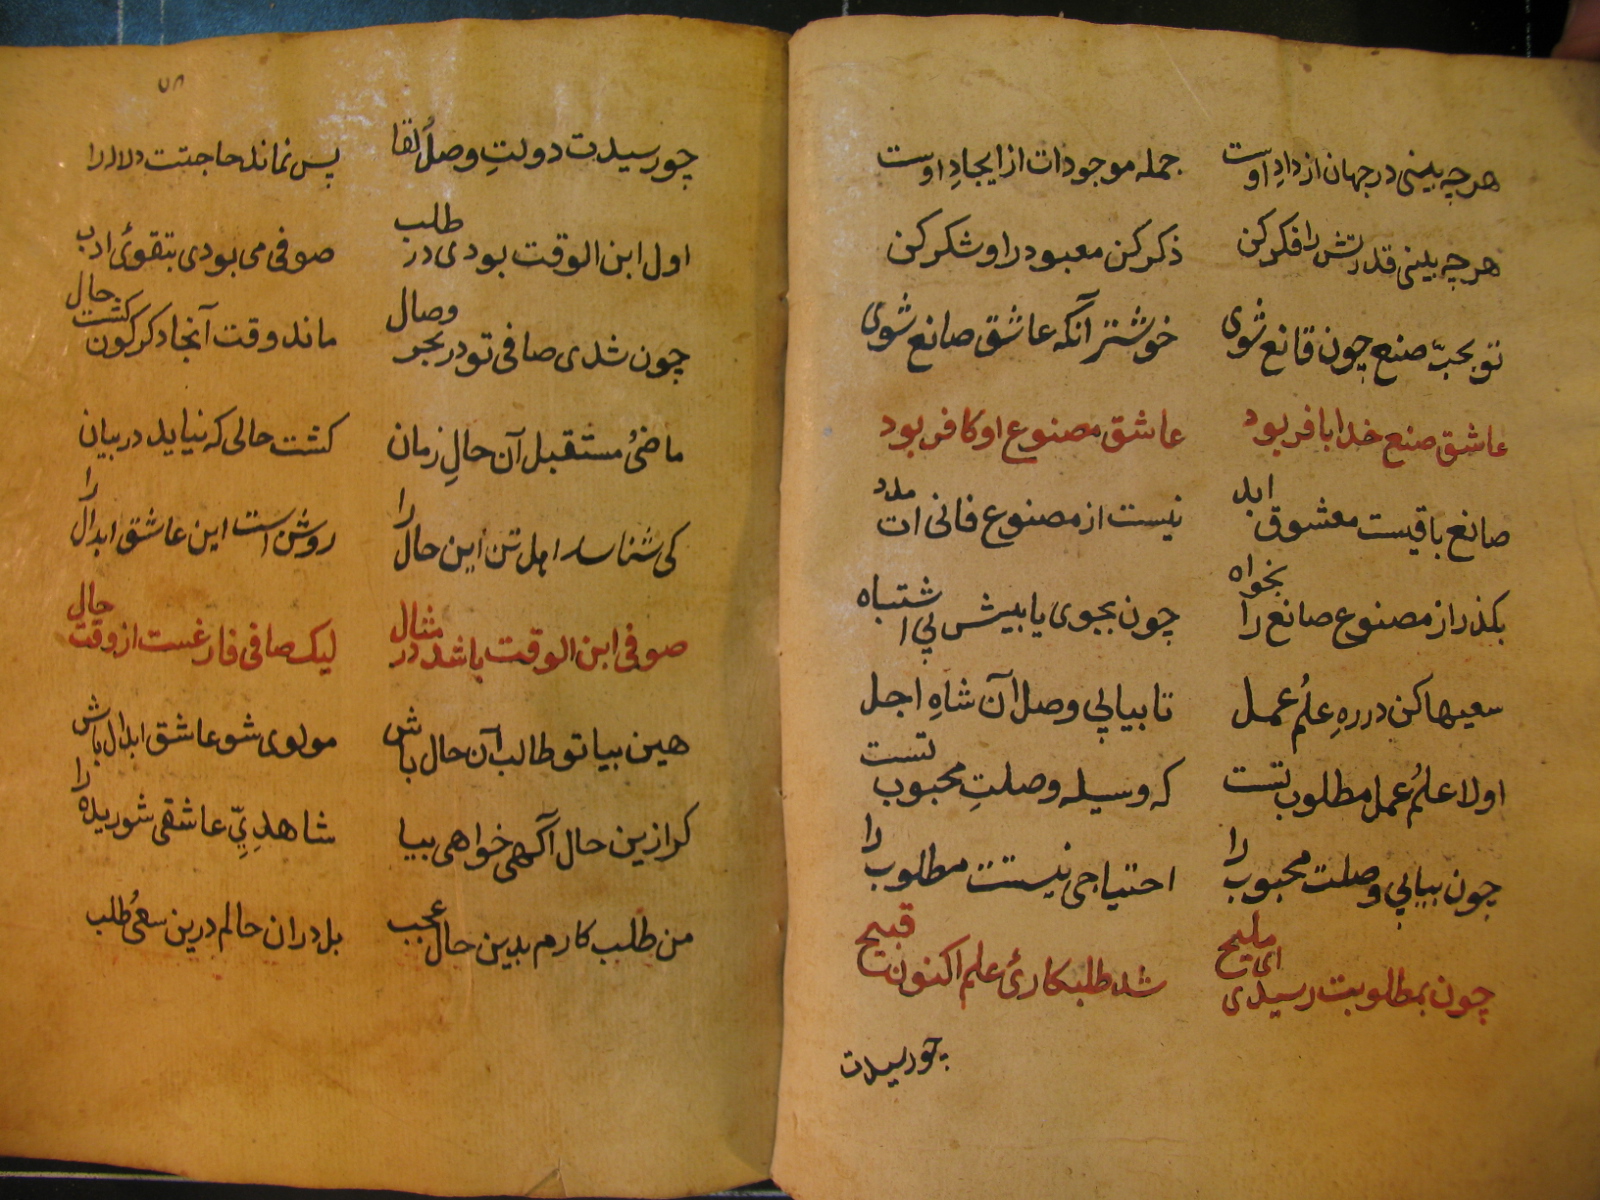 هر چه بینی در جهان از دادِ اوست جمله موجودات از ایجادِ اوست
هر چه بینی قدرتش را فکر کن ذکر کن معبود را و شکر کن
تو بحبّ صنع چون قانع شوی خوشتر آنکه عاشق صانع شوی
عاشق صنع خدا بافر بود عاشق مصنوع او کافر بود
صانع باقیست معشوق ابد نیست از مصنوع فانی ات مدد
بکذر از مصنوع صانع را بخواه چون بجوی یابیش بی اشتباه
سعیها کن در رهِ علمُ عمل تا بیابی وصل آن شاهِ اجل
اولا علمُ عمل مطلوب تست که وسیله وصلتِ محبوب تست
چون بیابی وصلت محبوب را احتیاجی نیستت مطلوب را
چون بمطلوبت رسیدی ای ملیح شد طلبکارئ علم اکنون قبیح
چو رسیدت
۷۸
چو رسیدت دولتِ وصلُ لقا پس نماند حاجتت دلاله را
اول ابن الوقت بودی در طلب صوفی می بودی بتقوئ ادب
چون شدی صافی تو در بحر وصال ماند وقت آنجا دکرکون کشت حال
ماضئُ مستقبل آن حالِ زمان کشت حالی که نیاید در بیان
کی شناسد اهل تن این حال را روشن است این عاشق ابدال را
صوفی ابن الوقت باشد در مثال لیک صافی فارغست از وقت حال
هین بیا تو طالب آن حال باش مولوی شو عاشق ابدال باش
کر ازین حال آگهی خواهی بیا شاهدِیِّ عاشقی شوریده را
من طلب کارم بدین حال عجب بل دران حالم درین سعئُ طلب